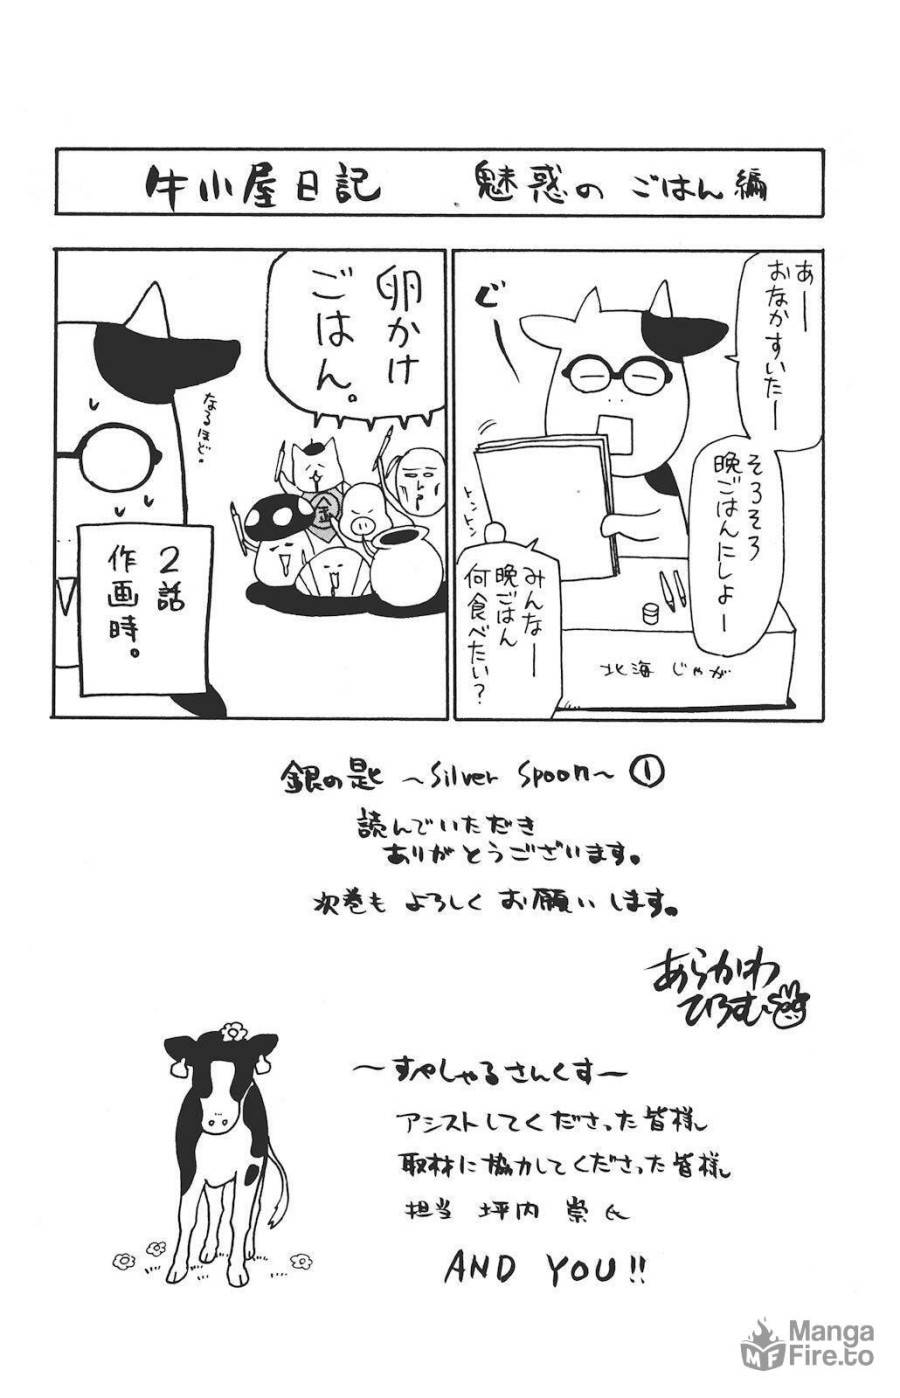 牛小屋日記　魅惑のごはん編
あー
おなかすいたー
そろそろ
晩ごはんにしよー
じー
トントン
みんなー
晩ごはん
何食べたい?
北海じゃが
卵かけ
ごはん。
銀
なるほど。
2話
作画時。
銀の匙 〜Silver Spoon〜 ①
読んでいただき
ありがとうございます。
次巻も よろしく お願いします。
あらかわ
ひろむ
〜すぺしゃるさんくす〜
アシストしてくださった皆様
取材に協力してくださった皆様
担当 坪内 崇氏
AND YOU!!
Manga
Fire.to
MF